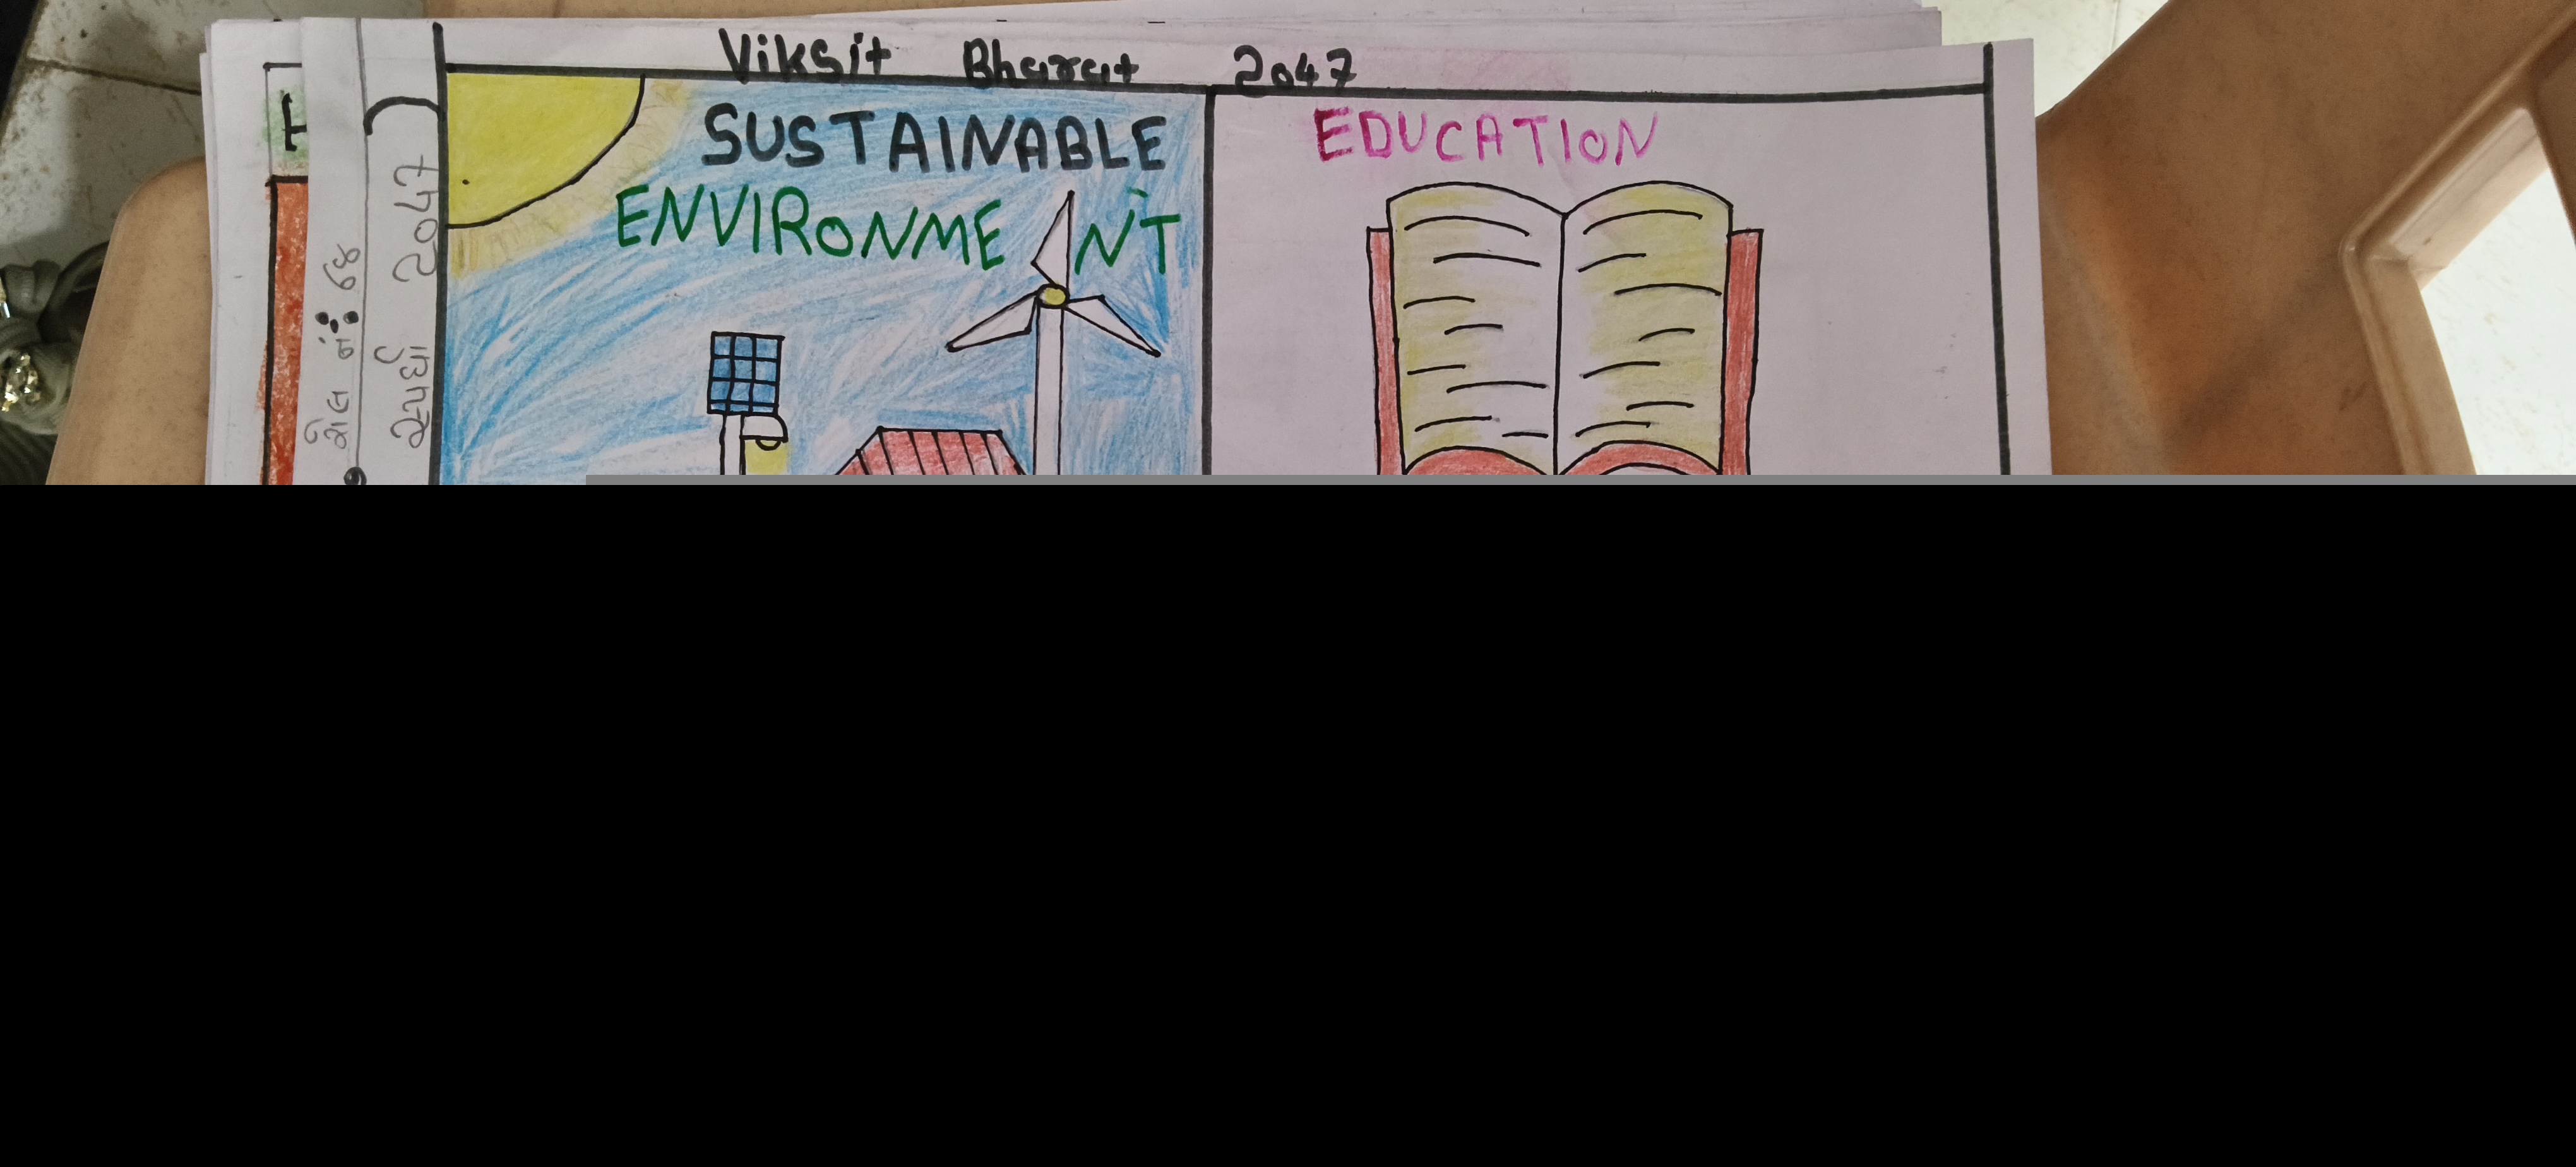 Viksit Bharat 2047
SUSTAINABLE
ENVIRONMENT
EDUCATION
રોલ નં: 68
સ્પર્ધા 2047